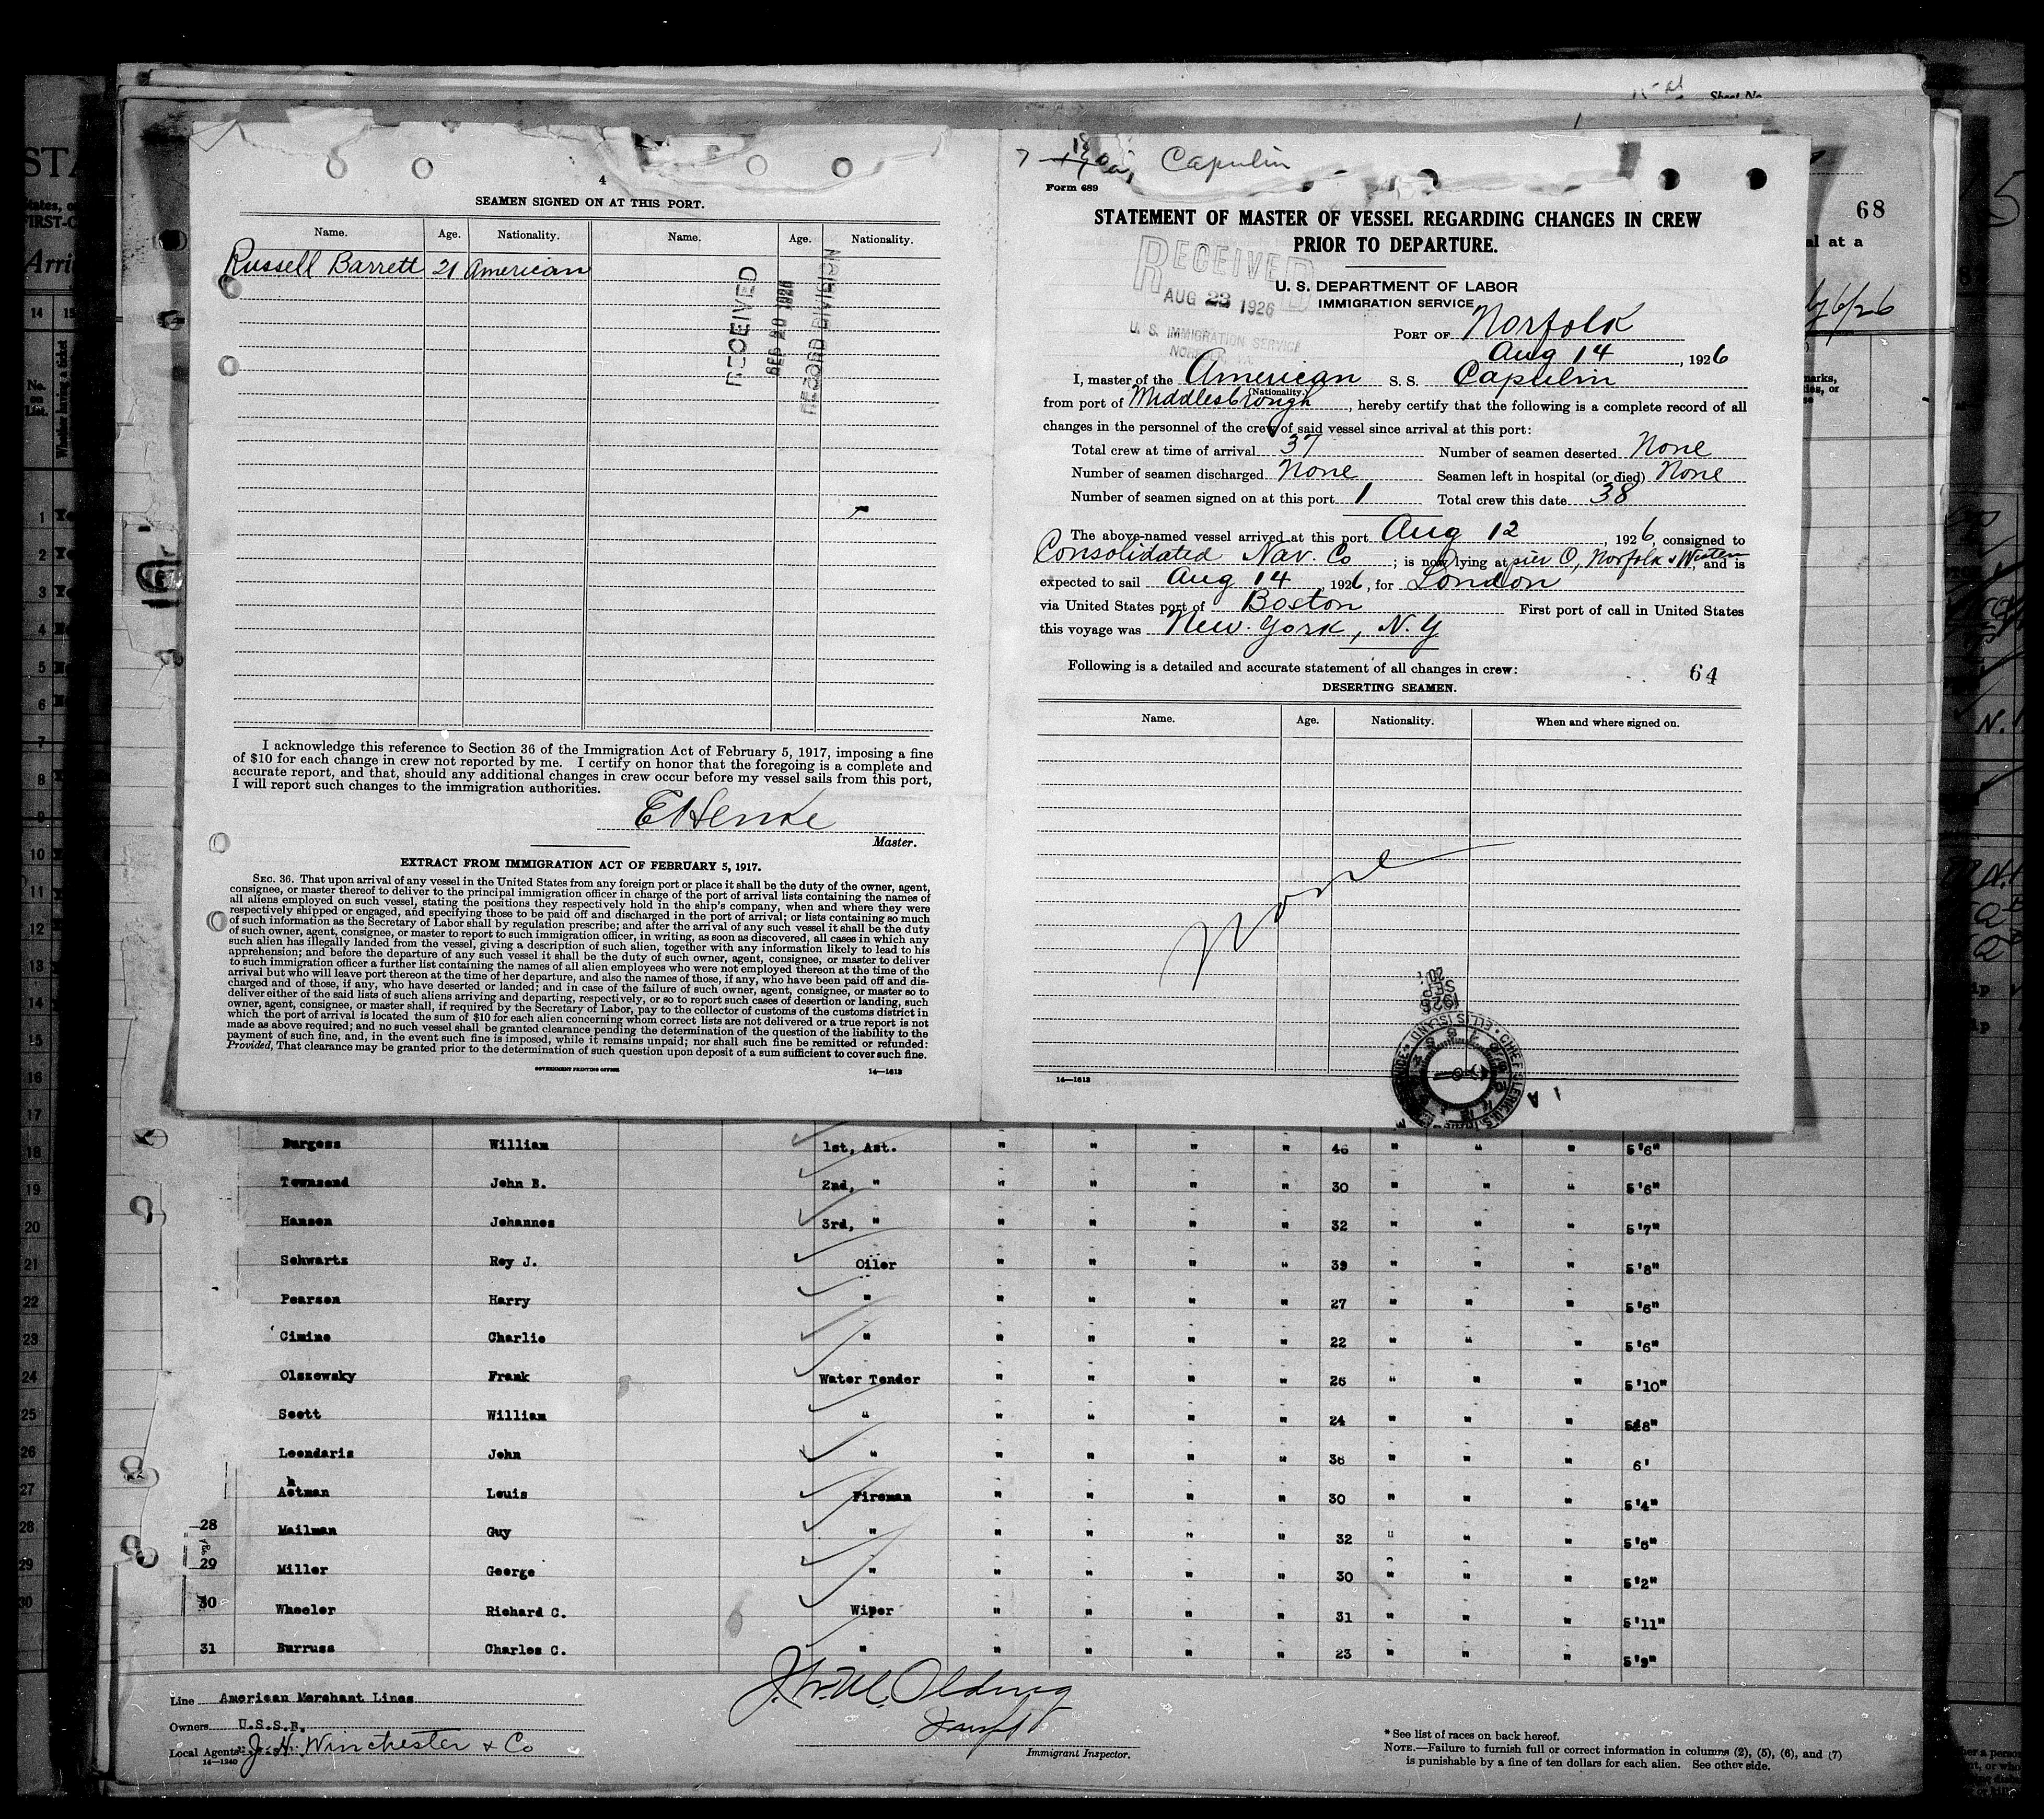 4
SEAMEN SIGNED ON AT THIS PORT.
Name. Age. Nationality. Name. Age. Nationality.
Russell Barrett 21 American
RECEIVED
SEP 20 1926
RECORD DIVISION
I acknowledge this reference to Section 36 of the Immigration Act of February 5, 1917, imposing a fine
of $10 for each change in crew not reported by me. I certify on honor that the foregoing is a complete and
accurate report, and that, should any additional changes in crew occur before my vessel sails from this port,
I will report such changes to the immigration authorities.
EHenke
Master.
EXTRACT FROM IMMIGRATION ACT OF FEBRUARY 5, 1917.
SEC. 36. That upon arrival of any vessel in the United States from any foreign port or place it shall be the duty of the owner, agent,
consignee, or master thereof to deliver to the principal immigration officer in charge of the port of arrival lists containing the names of
all aliens employed on such vessel, stating the positions they respectively hold in the ship's company, when and where they were
respectively shipped or engaged, and specifying those to be paid off and discharged in the port of arrival; or lists containing so much
of such information as the Secretary of Labor shall by regulation prescribe; and after the arrival of any such vessel it shall be the duty
of such owner, agent, consignee, or master to report to such immigration officer, in writing, as soon as discovered, all cases in which any
such alien has illegally landed from the vessel, giving a description of such alien, together with any information likely to lead to his
apprehension; and before the departure of any such vessel it shall be the duty of such owner, agent, consignee, or master to deliver
to such immigration officer a further list containing the names of all alien employees who were not employed thereon at the time of the
arrival but who will leave port thereon at the time of her departure, and also the names of those, if any, who have been paid off and dis-
charged and of those, if any, who have deserted or landed; and in case of the failure of such owner, agent, consignee, or master so to
deliver either of the said lists of such aliens arriving and departing, respectively, or so to report such cases of desertion or landing, such
owner, agent, consignee, or master shall, if required by the Secretary of Labor, pay to the collector of customs of the customs district in
which the port of arrival is located the sum of $10 for each alien concerning whom correct lists are not delivered or a true report is not
made as above required; and no such vessel shall be granted clearance pending the determination of the question of the liability to the
payment of such fine, and, in the event such fine is imposed, while it remains unpaid; nor shall such fine be remitted or refunded:
Provided, That clearance may be granted prior to the determination of such question upon deposit of a sum sufficient to cover such fine.
GOVERNMENT PRINTING OFFICE 14—1613
Capulin
Form 689
STATEMENT OF MASTER OF VESSEL REGARDING CHANGES IN CREW
PRIOR TO DEPARTURE.
RECEIVED
AUG 23 1926
U. S. IMMIGRATION SERVICE
NORFOLK, VA.
U. S. DEPARTMENT OF LABOR
IMMIGRATION SERVICE
PORT OF Norfolk
Aug 14, 1926
I, master of the American S. S. Capulin
(Nationality.)
from port of Middlesbrough, hereby certify that the following is a complete record of all
changes in the personnel of the crew of said vessel since arrival at this port:
Total crew at time of arrival 37 Number of seamen deserted None
Number of seamen discharged None Seamen left in hospital (or died) None
Number of seamen signed on at this port 1 Total crew this date 38
The above-named vessel arrived at this port Aug 12, 1926, consigned to
Consolidated Nav. Co; is now lying at pier O, Norfolk & Western and is
expected to sail Aug 14, 1926, for London
via United States port of Boston First port of call in United States
this voyage was New York, N.Y
Following is a detailed and accurate statement of all changes in crew: 64
DESERTING SEAMEN.
Name. Age. Nationality. When and where signed on.
None
14—1613
68
Sheet No.
al at a
14 15
No. on List.
Whether having a ticket
18 Burgess William 1st, Ast. " " " " 46 " " " 5'6"
19 Townsend John B. 2nd, " " " " " 30 " " " 5'6"
20 Hansen Johannes 3rd, " " " " " 32 " " " 5'7"
21 Schwartz Roy J. Oiler " " " " 39 " " " 5'8"
22 Pearson Harry " " " " " 27 " " " 5'6"
23 Cimino Charlie " " " " " 22 " " " 5'6"
24 Olszewsky Frank Water Tender " " " " 26 " " " 5'10"
25 Scott William " " " " " 24 " " " 5'8"
26 Leondaris John " " " " " 36 " " " 6'
27 Aetman Louis Fireman " " " " 30 " " " 5'4"
28 Mailman Guy " " " " " 32 " " " 5'6"
29 Miller George " " " " " 30 " " " 5'2"
30 Wheeler Richard C. Wiper " " " " 31 " " " 5'11"
31 Burruss Charles C. " " " " " 23 " " " 5'9"
Line American Merchant Lines
Owners U.S.S.B.
Local Agents J. H. Winchester & Co
14—1240
Immigrant Inspector.
* See list of races on back hereof.
NOTE.—Failure to furnish full or correct information in columns (2), (5), (6), and (7)
is punishable by a fine of ten dollars for each alien. See other side.